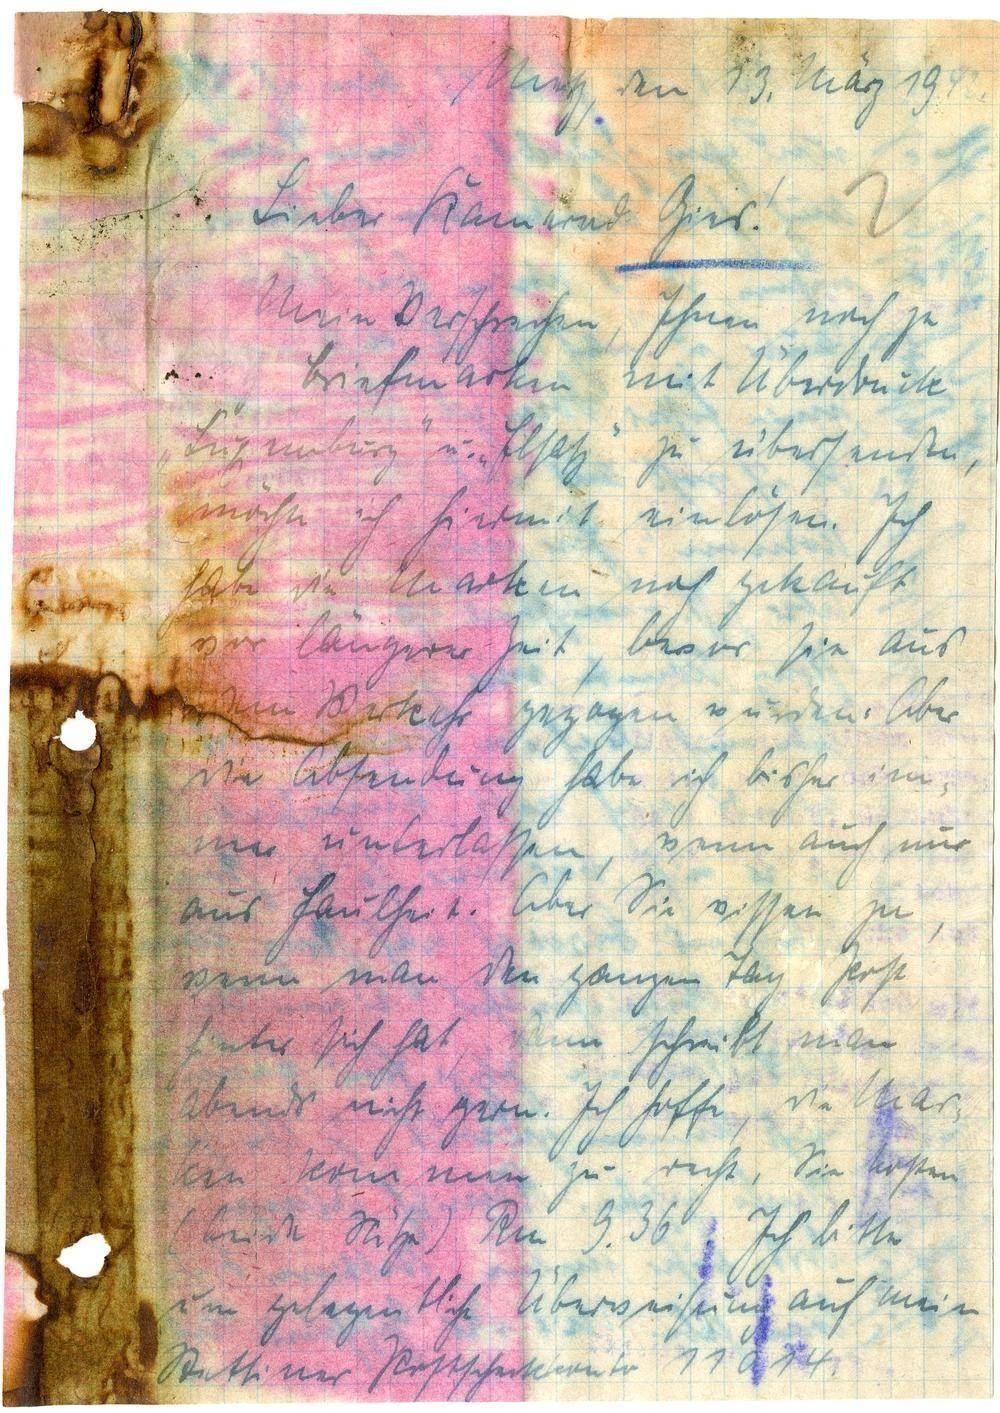 Metz, den 13. März 19
Lieber Kamerad Gies!
Mein Versprechen, Ihnen noch je
Briefmarken mit Überdruck
„Luxemburg" u. „Elsaß" zu übersenden,
möchte ich hiermit einlösen. Ich
habe die Marken noch gekauft
vor längerer Zeit, bevor sie aus
dem Verkehr gezogen wurden. Aber
die Absendung habe ich bisher im-
mer unterlassen, wenn auch nur
aus Faulheit. Aber Sie wissen ja,
wenn man den ganzen Tag Post
hinter sich hat, dann schreibt man
abends nicht gern. Ich hoffe, die Mar-
ken kommen zu recht. Sie kosten
(beide Sätze) Rm 9.36 Ich bitte
um gelegentliche Überweisung auf mein
Stettiner Postscheckkonto 11614.